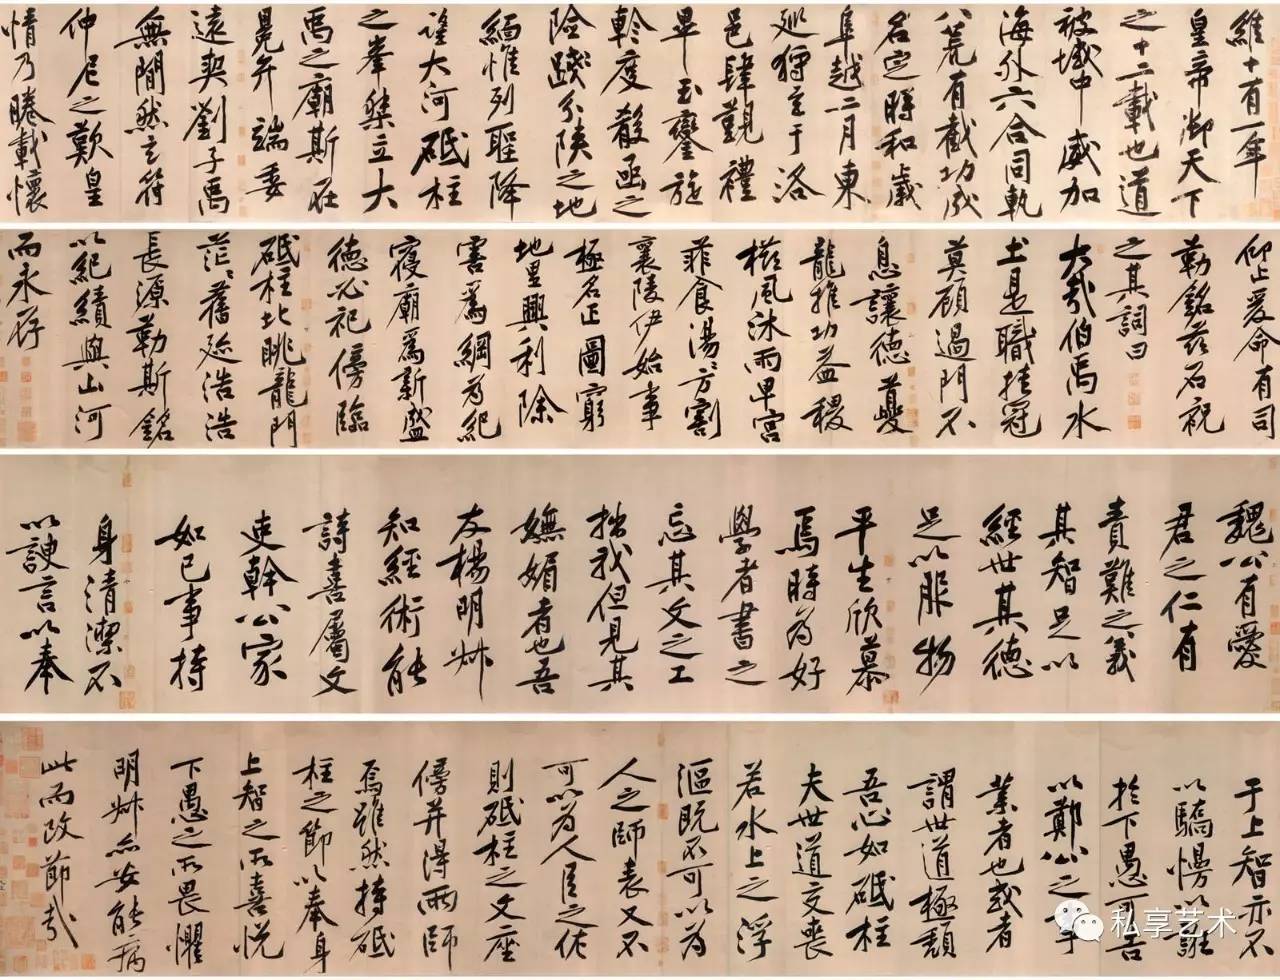 維十有一年
皇帝御天下
之十二載也道
被域中威加
海外六合同軌
八荒有截功成
名定時和歲
阜越二月東
巡狩至于洛
邑肆覲禮
畢玉鑾旋
軫度殽函之
險踐分陝之地
緬惟列聖降
望大河砥柱
之峯桀立大
禹之廟斯在
冕弁端委
遠契劉子禹
無間然玄符
仲尼之歎皇
情乃睠載懷
仰止爰命有司
勒銘茲石祝
之其詞曰
大哉伯禹水
土是職挂冠
莫顧過門不
息讓德夔
龍推功益稷
櫛風沐雨卑宮
菲食湯々方割
襄陵伊始事
極名正圖窮
地里興利除
害爲綱爲紀
寢廟爲新盛
德必祀傍臨
砥柱北眺龍門
茫々舊跡浩浩
長源勒斯銘
以紀績與山河
而永存
魏公有愛
君之仁有
責難之義
其智足以
經世其德
足以服物
平生欣慕
焉時為好
學者書之
忘其文之工
拙我但見其
嫵媚者也吾
友楊明叔
知經術能
詩喜屬文
吏幹公家
如己事持
身清潔不
以諛言以奉
于上智亦不
以驕慢以誑
於下愚可告
以鄭公之事
業者也或者
謂世道極頹
吾心如砥柱
夫世道交喪
若水上之浮
漚既不可以為
人之師表又不
可以為人臣之佐
則砥柱之文座
傍并得兩師
焉雖然持砥
柱之節以奉身
上智之所喜悅
下愚之所畏懼
明叔亦安能病
此而改節哉
私享艺术